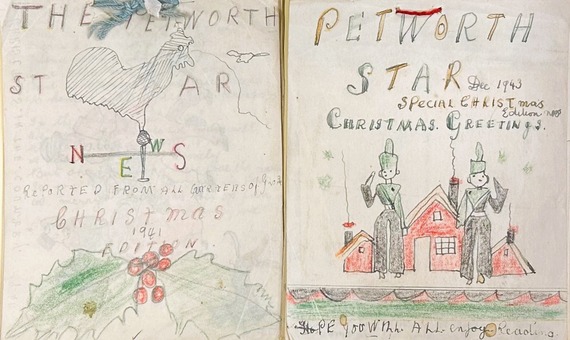 THE PETWORTH
STAR
N E W S
REPORTED FROM ALL QUARTERS OF
CHRISTMAS
1941
EDITION.
PETWORTH
STAR Dec 1943
SPECIAL CHRISTmas
Edition
CHRISTMAS. GREETINGS.
HoPE you Will ALL enjoy Reading.